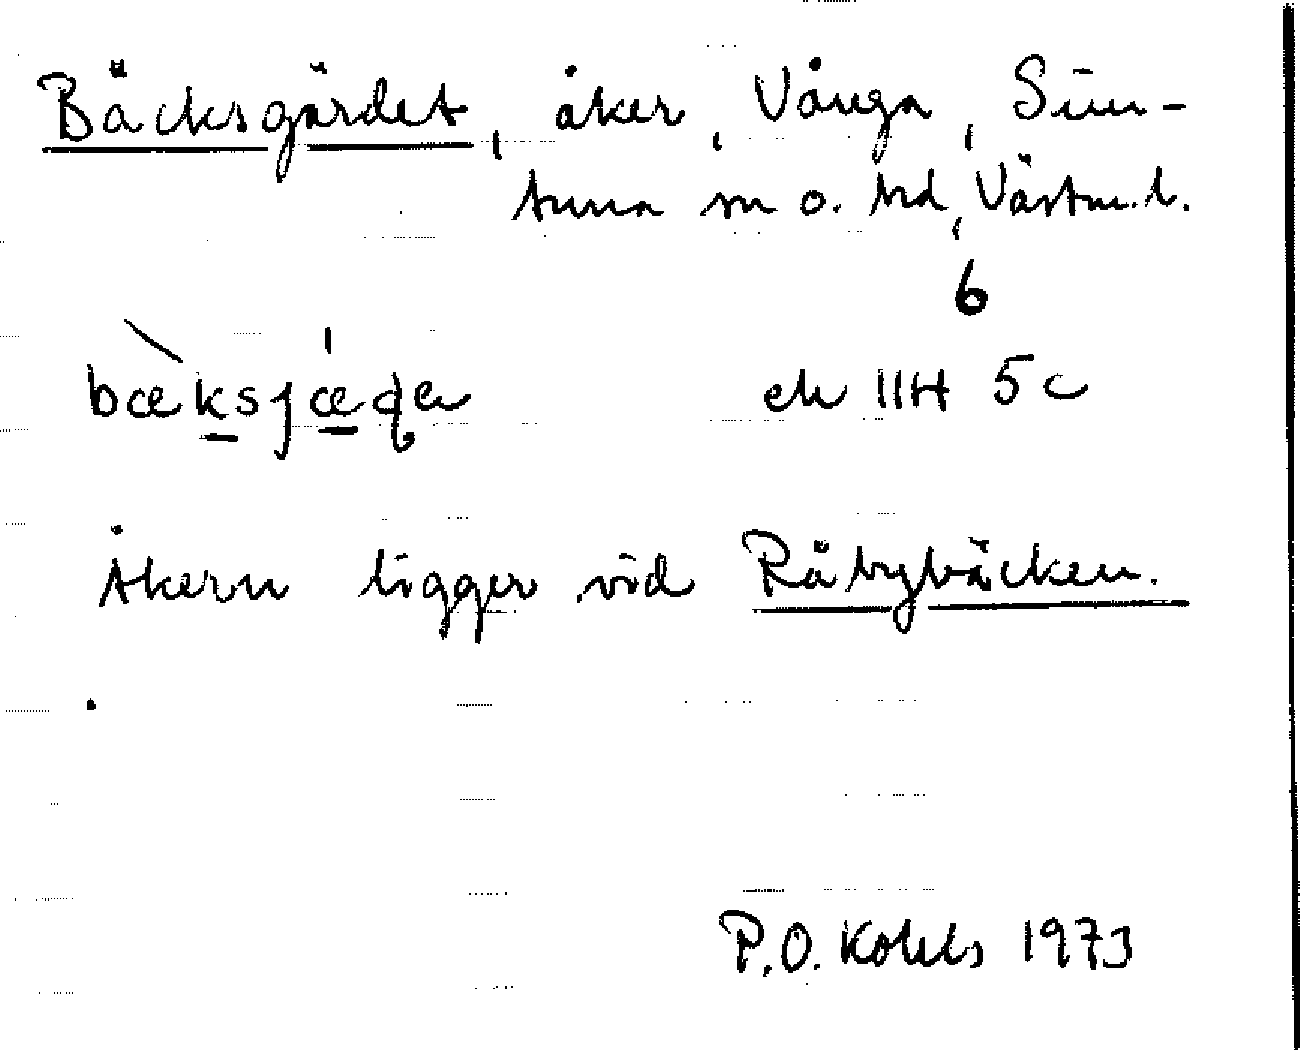 Bäcksgärdet, åker, Vånga, Sim-
tuna sn o. hd, Västm. l.
6
bæksjæḍa
ek 11H 5c
Åkern ligger vid Råbybäcken.
P.O. Kohls 1973